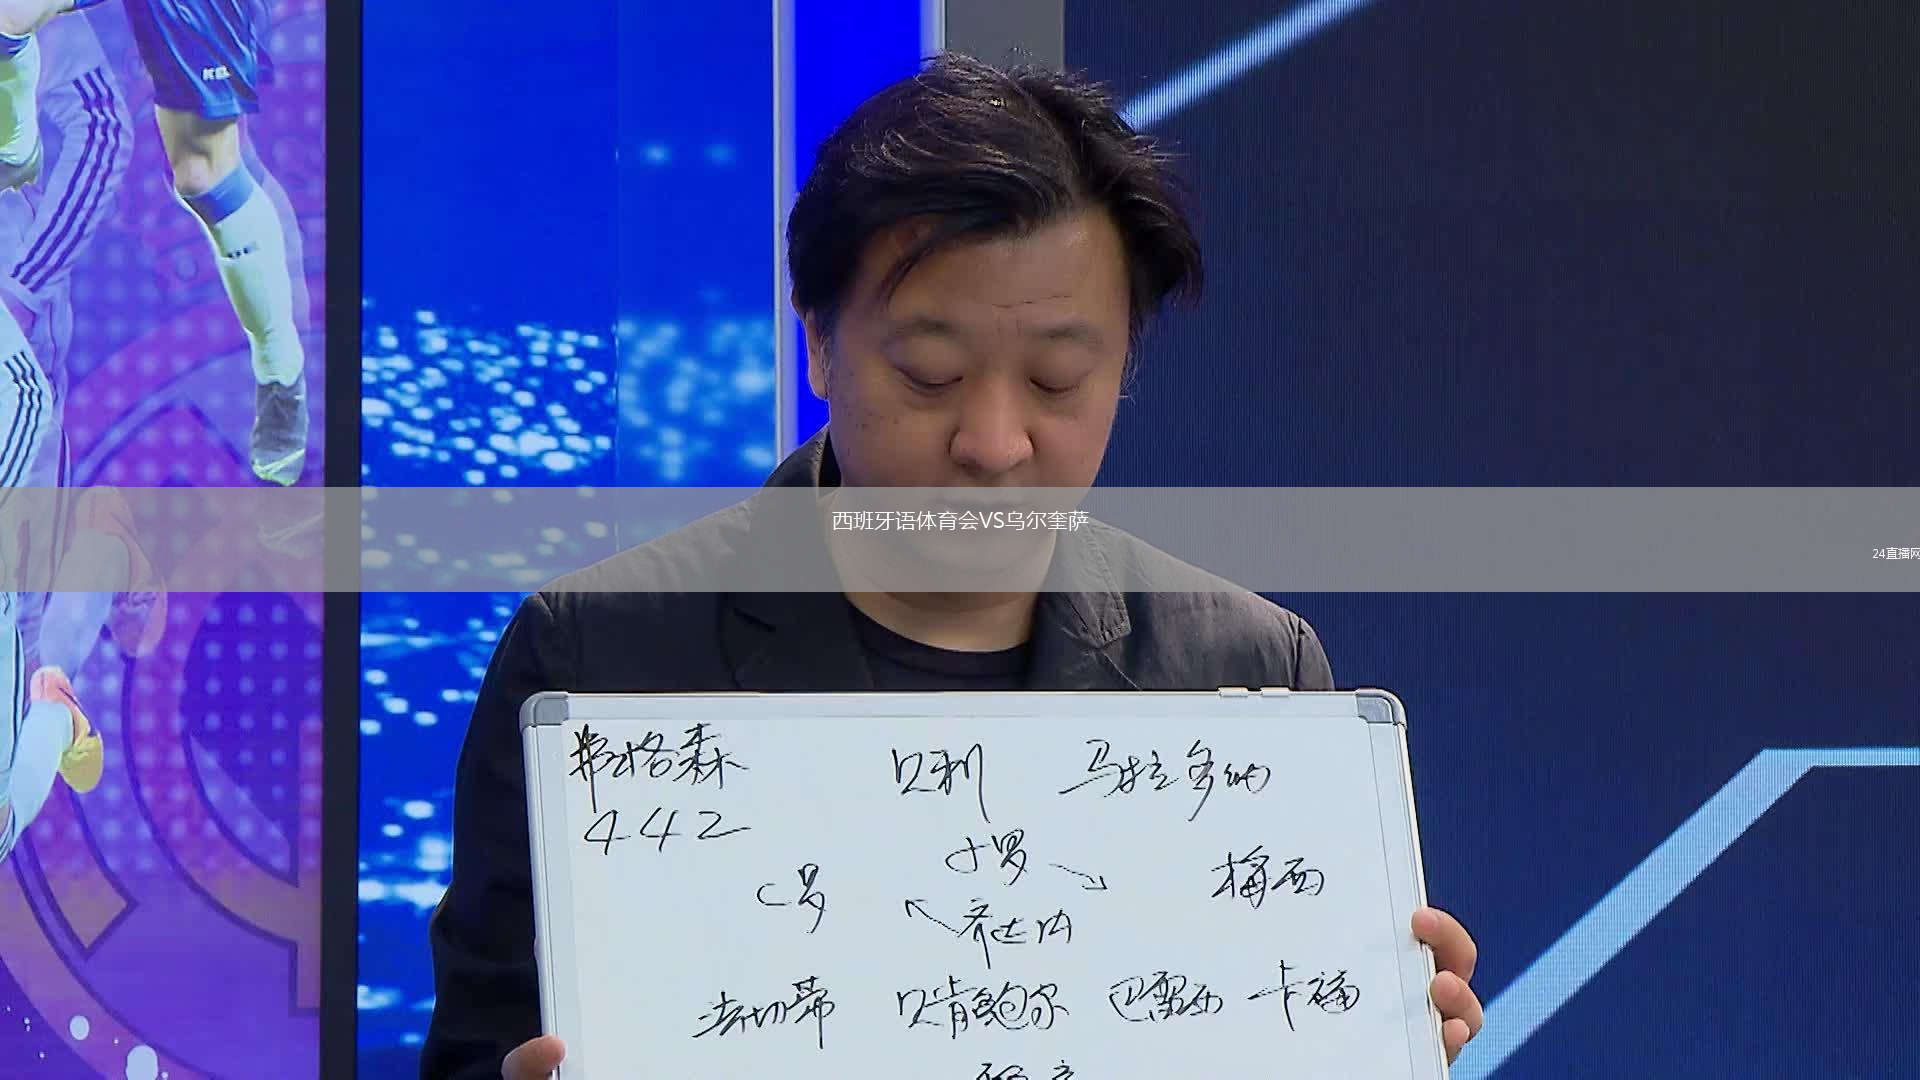 KELME
西班牙语体育会VS乌尔奎萨
24直播网
弗格森 贝利 马拉多纳
442
小罗
C罗 梅西
齐达内
法切蒂 贝肯鲍尔 巴雷西 卡福